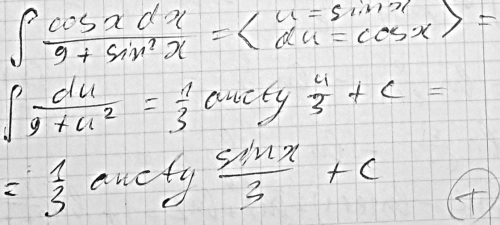 ∫ cosx dx / 9 + sin²x = < u = sinx
du = cosx > =
∫ du / 9 + u² = 1/3 arctg u/3 + C =
= 1/3 arctg sinx/3 + C
+